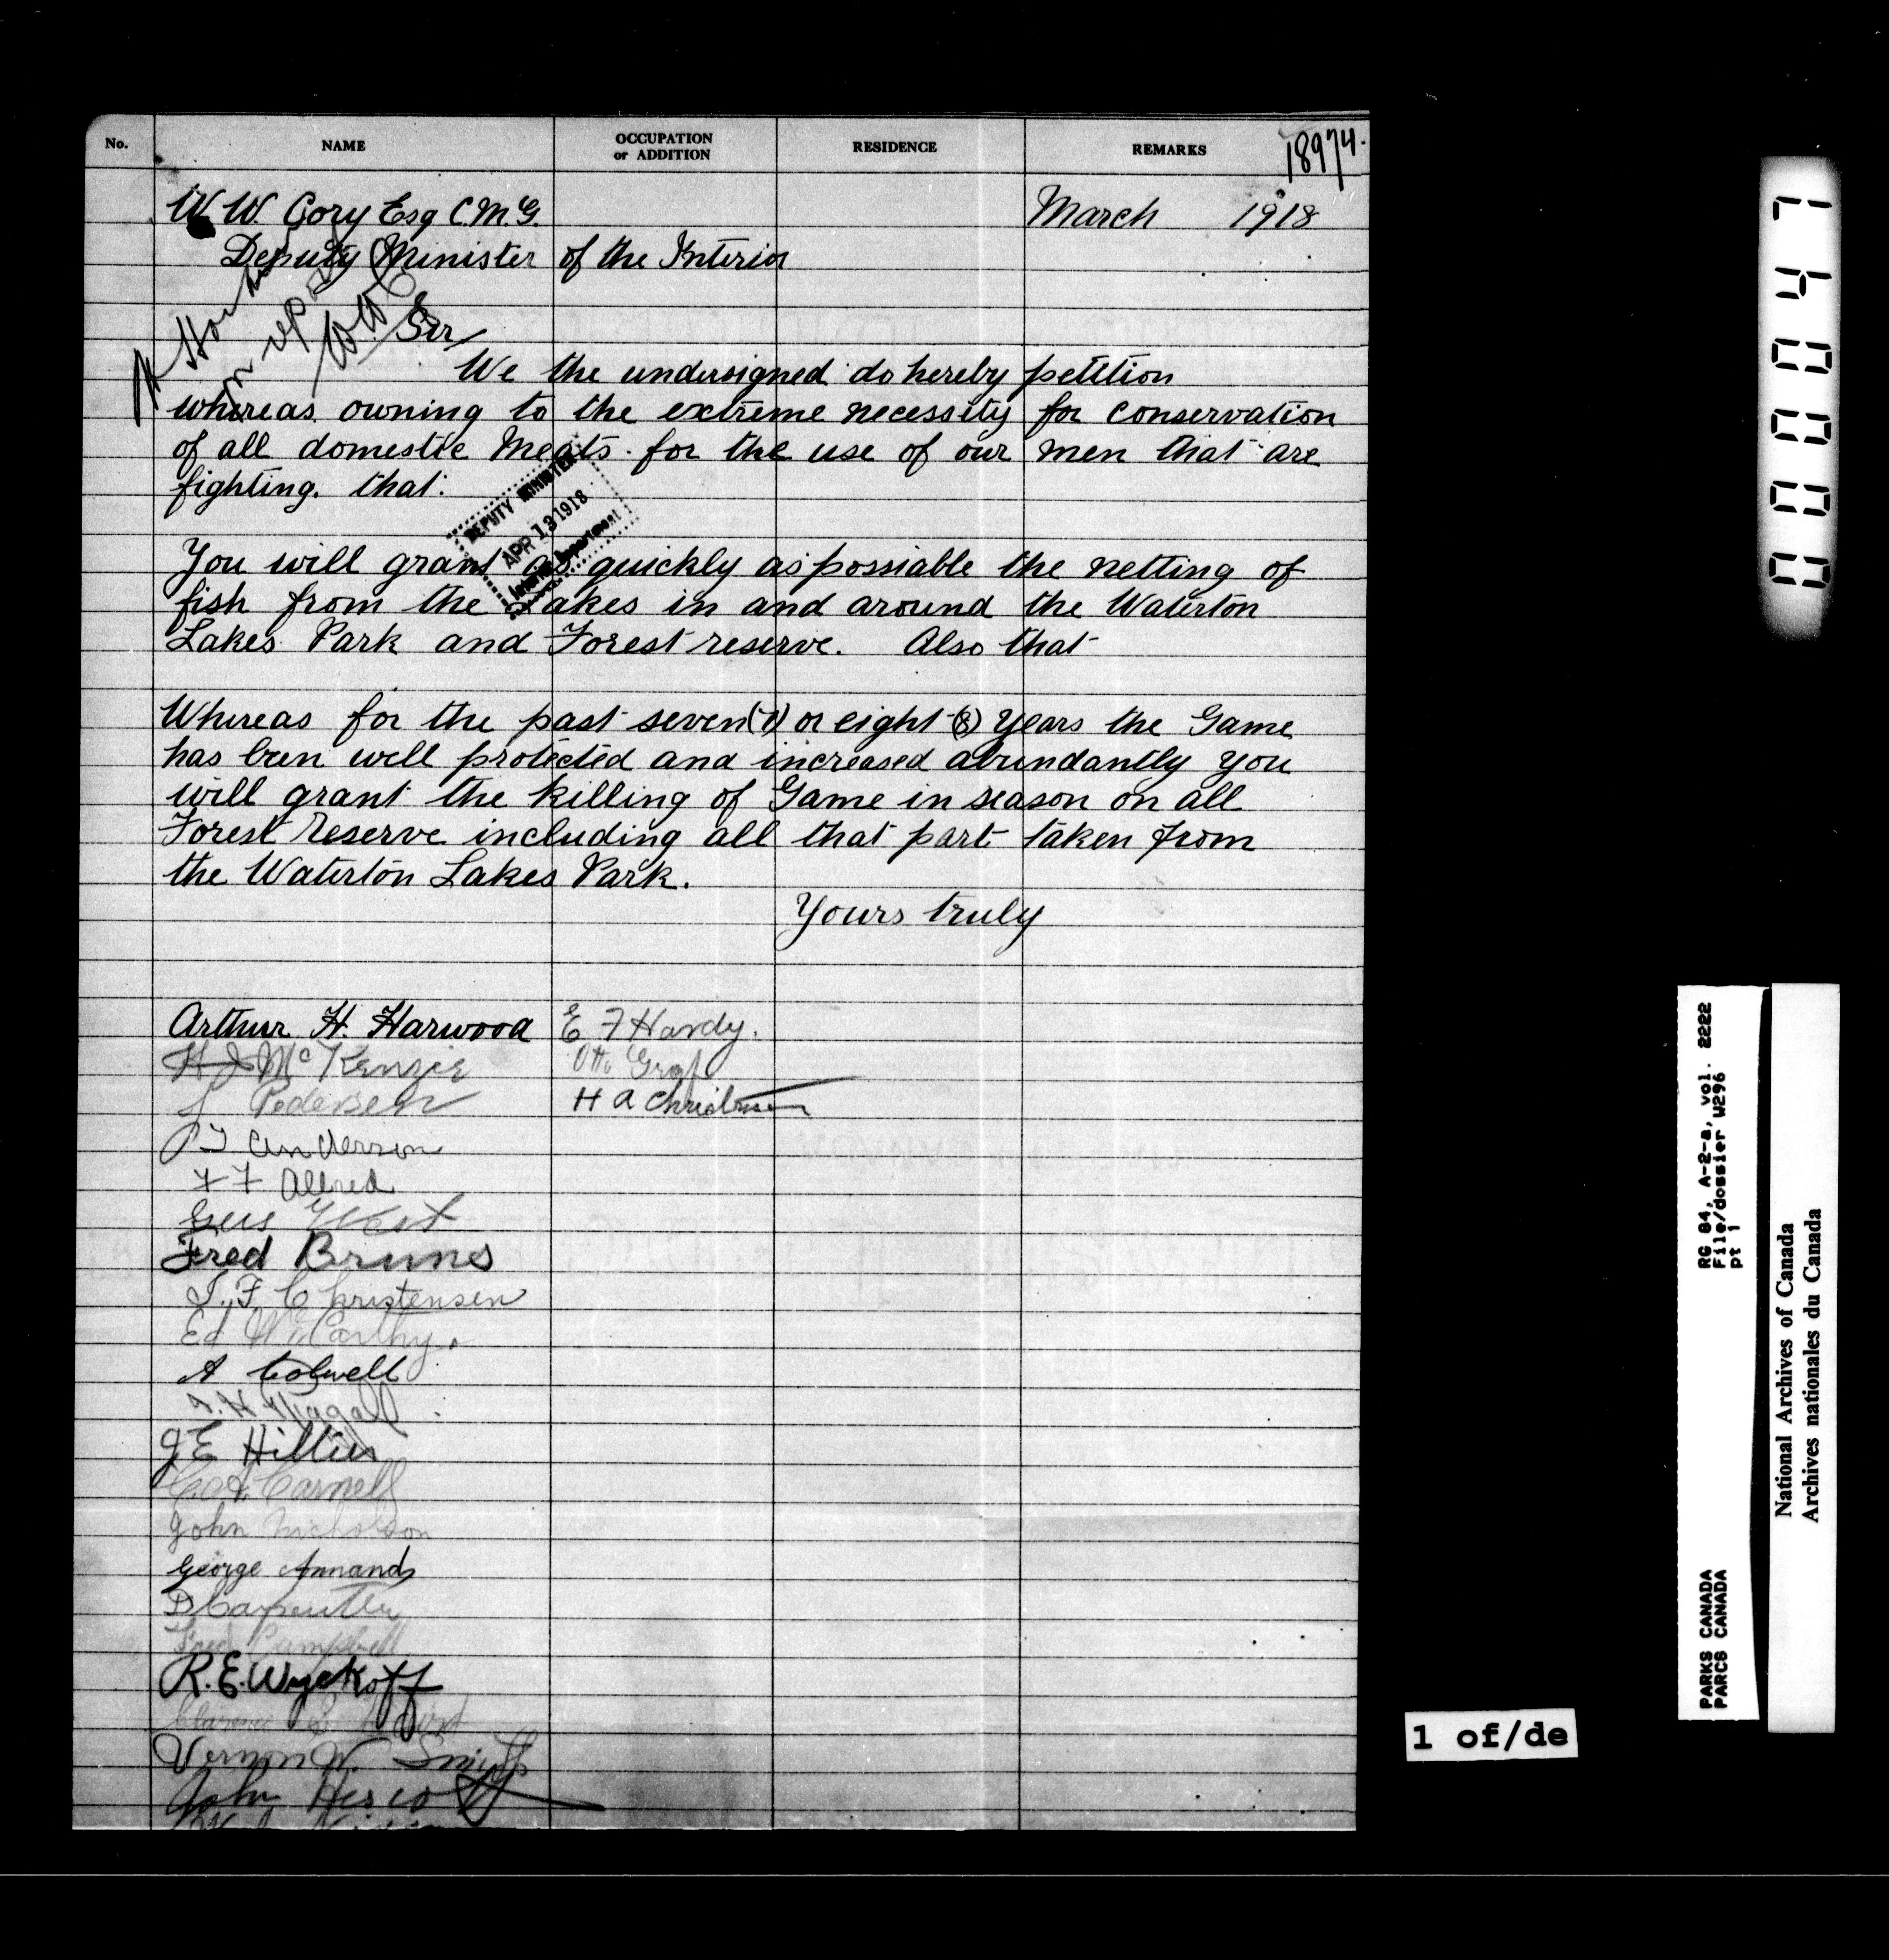 No. NAME OCCUPATION or ADDITION RESIDENCE REMARKS
18974.
W W. Cory Esq C.M.G. March 1918
Deputy Minister of the Interior
Sir
We the undersigned do hereby petition
whereas owning to the extreme necessity for conservation
of all domestic Meats for the use of our men that are
fighting. that.
DEPUTY MINISTER
APR 13 1918
Interior Department
You will grant as quickly as possiable the netting of
fish from the Lakes in and around the Waterton
Lakes Park and Forest reserve. Also that
Whereas for the past seven (7) or eight (8) years the Game
has been well protected and increased abundantly you
will grant the killing of Game in season on all
Forest Reserve including all that part taken from
the Waterton Lakes Park.
Yours truly
Arthur H. Harwood E F Hardy.
H J McKenzie Otto Graf
Pedersen H A Christensen
Anderson
F F Allred
Gus West
Fred Bruns
J. F. Christensen
Ed McCarthy.
A Colwell
J E Hillier
Carnell
John Nicholson
George Annand
D Carpenter
Fred Campbell
R. E. Wyckoff
Clarence
Vernon W. Smith
John Herscott
0000471
RG 84, A-2-a, vol. 2222
File/dossier W296
pt 1
PARKS CANADA
PARCS CANADA
National Archives of Canada
Archives nationales du Canada
1 of/de